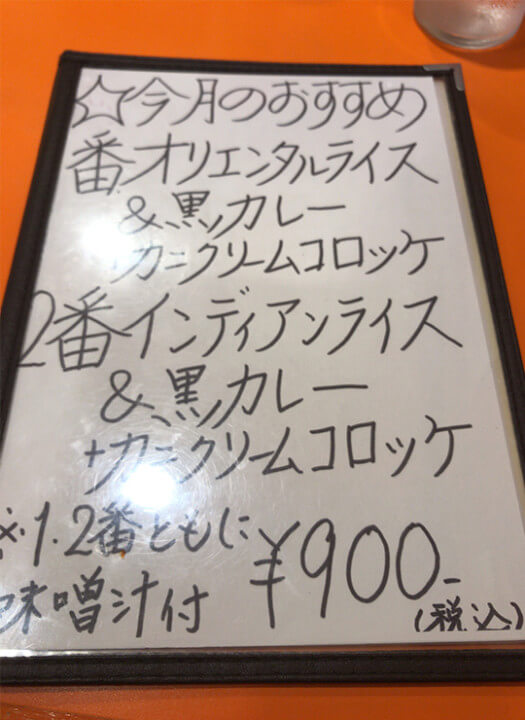 ☆今月のおすすめ
番オリエンタルライス
&黒カレー
+カニクリームコロッケ
2番インディアンライス
&黒カレー
+カニクリームコロッケ
※1.2番ともに
味噌汁付 ¥900-
(税込)